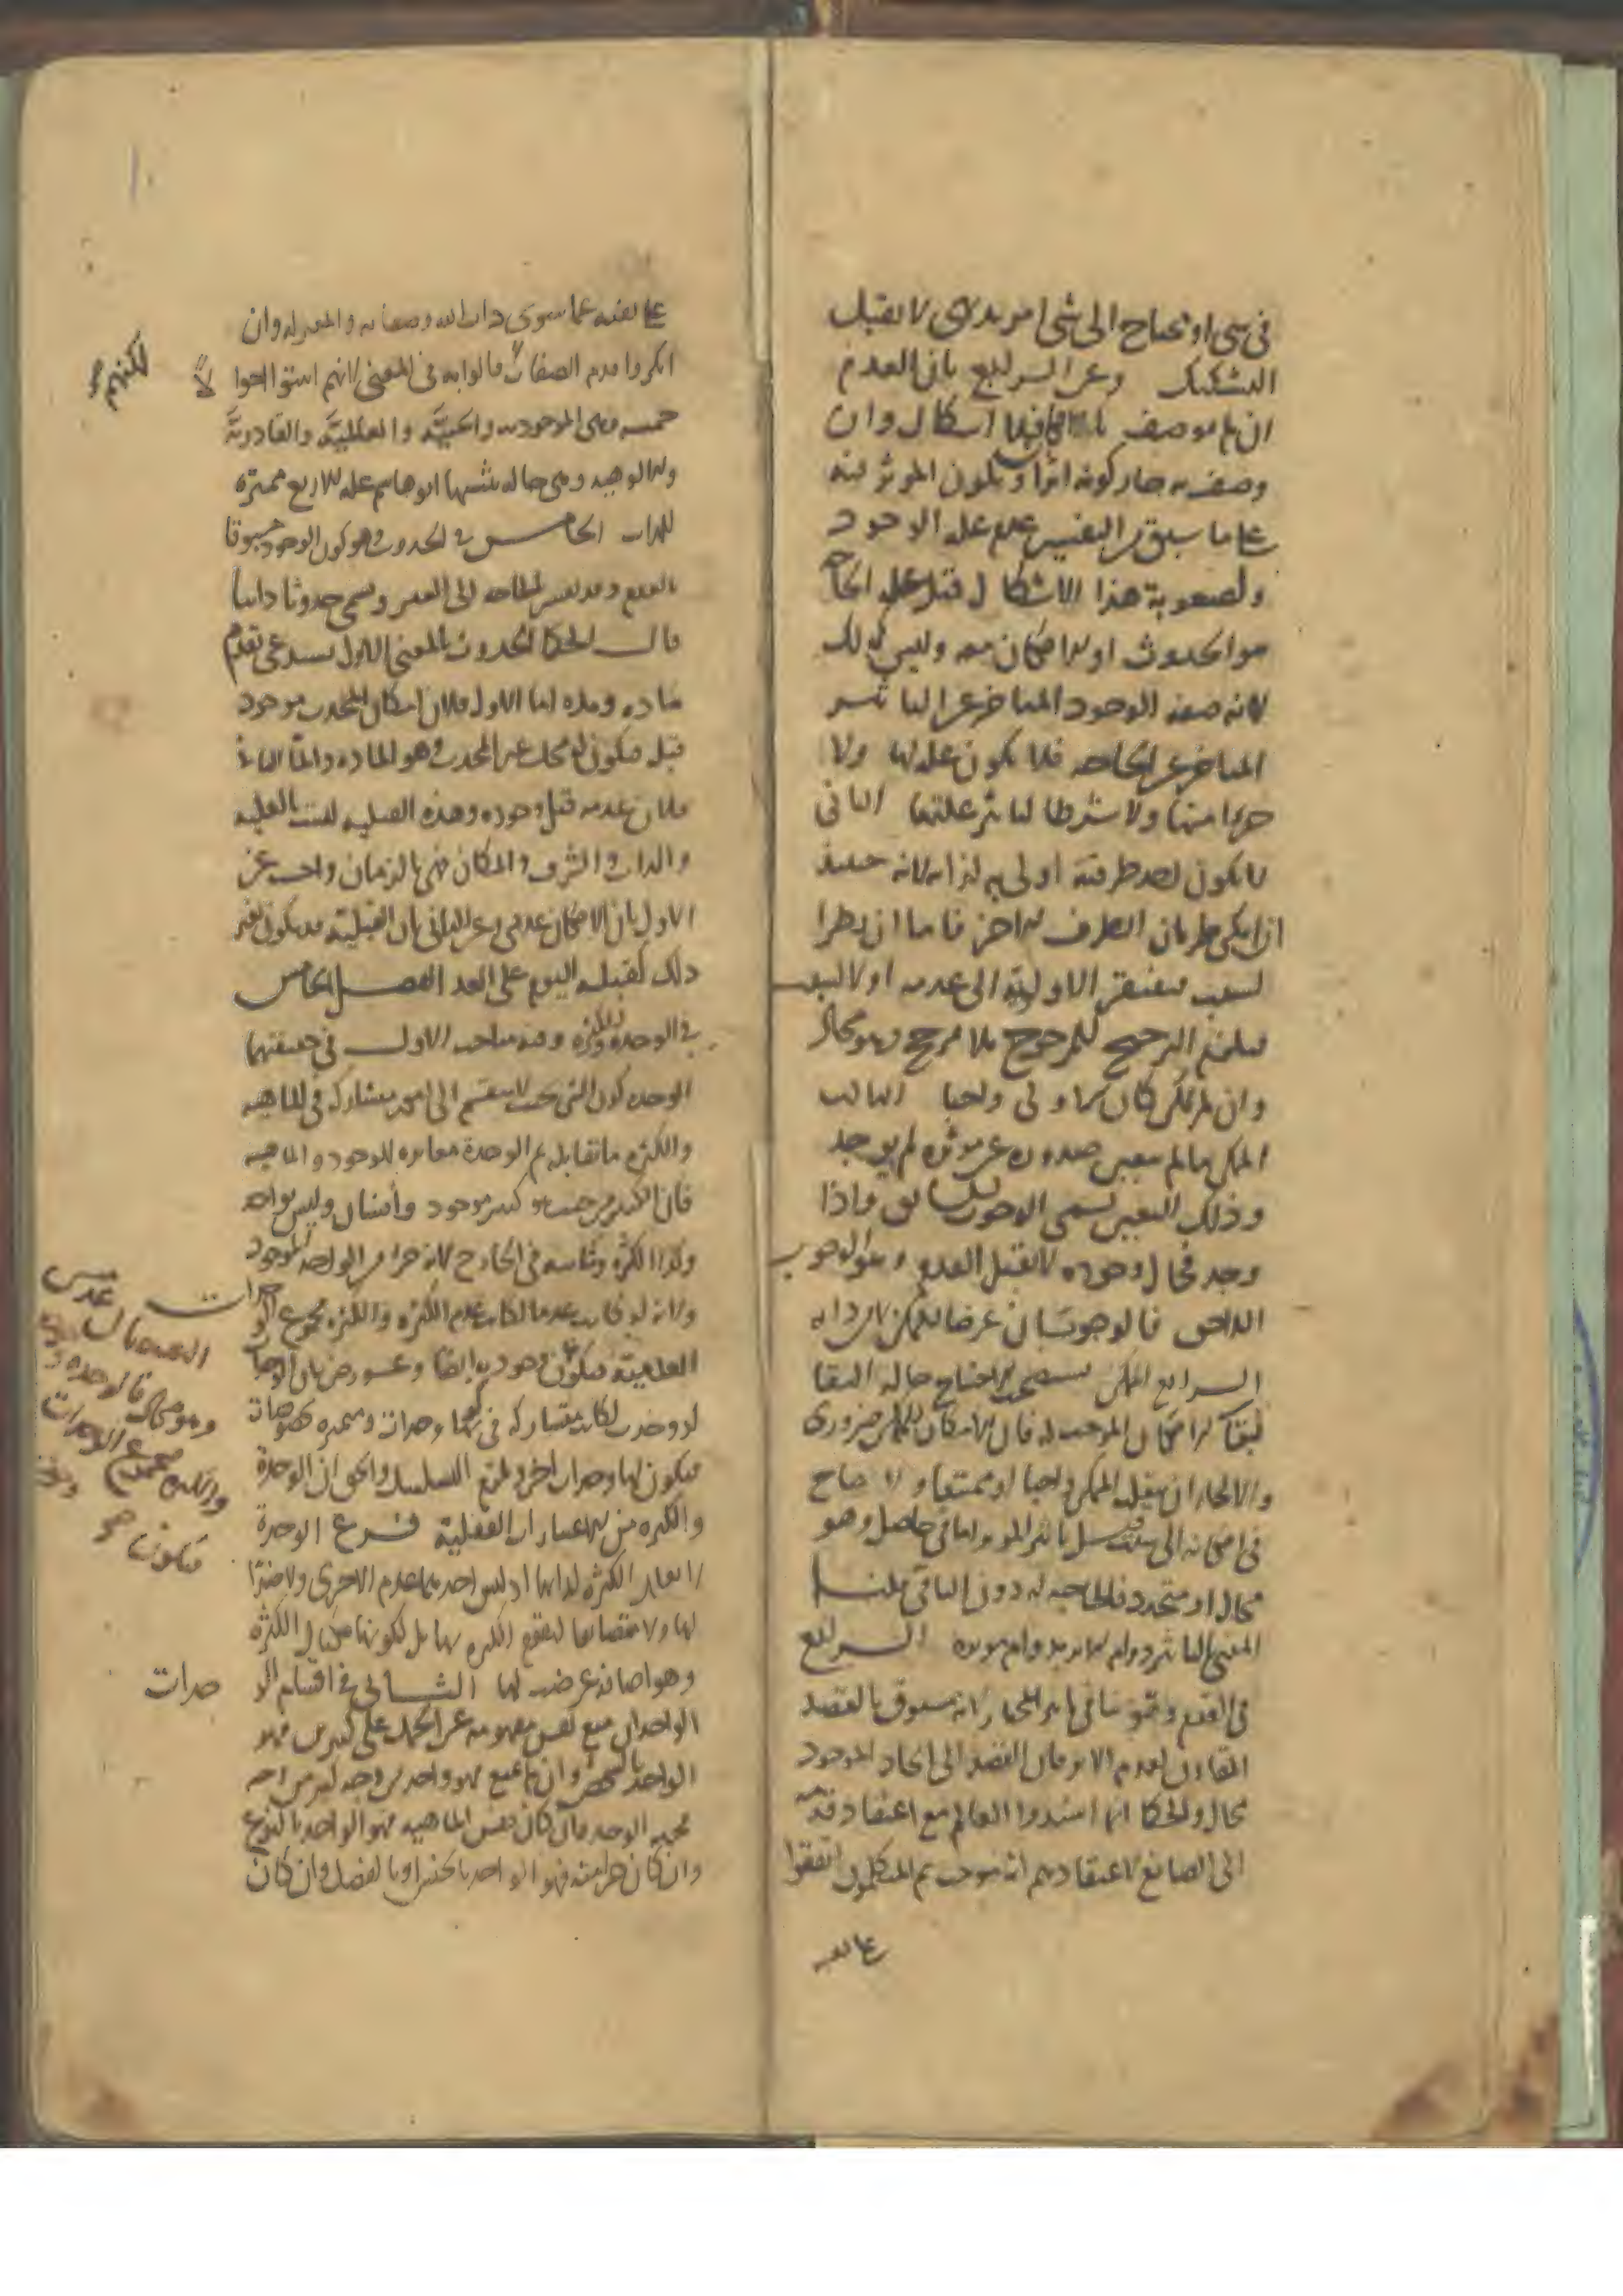 في شي او يحتاج الى شي اخر بديهي لا يقبل
التشكيك وعن الرابع بان العدم
ان لم يوصف فلا اشكال وان
وصف به جاز كونه اثرا ويكون الموثر فيه
على ما سبق من التفسير عدم علة الوجود
ولصعوبة هذا الاشكال قيل علة الحاجة
هو الحدوث او الامكان معه وليس كذلك
لانه صفة الوجود المتاخر عن التاثير
المتاخر عن الحاجة فلا يكون علة لها ولا
جزا منها ولا شرطا لتاثير علتها الثاني
لا يكون احد طرفيه اولى به لذاته لانه حينئذ
ان امكن طريان الطرف الاخر فاما ان يطرا
لسبب فيفتقر الاولوية الى عدمه او لا لسبب
فيلزم الترجيح للمرجوح بلا مرجح وهو محال
وان لم يمكن كان الاولى واجبا الثالث
الممكن ما لم يتعين صدوره عن موثره لم يوجد
وذلك التعين يسمى الوجوب السابق واذا
وجد فحال وجوده لا يقبل العدم وهو الوجوب
اللاحق فالوجوبان عرضا للممكن لا من ذاته
الرابع الممكن يستصحب الاحتياج حالة البقا
لبقا الامكان الموجب له فان الامكان للممكن ضروري
والا لجاز ان ينقلب الممكن واجبا او ممتنعا ولا احتاج
في امكانه الى سبب قيل تاثير الموثر اما في حاصل وهو
محال او متجدد فالحاجة له دون الباقي قلنا
المعنى بالتاثير دوام الاثر بدوام موثره الرابع
في القدم وهو ينافي تاثير المختار لانه مسبوق بالقصد
المقارن لعدم الاثر فان القصد الى ايجاد الموجود
محال والحكما انما اسندوا العالم مع اعتقاد قدمه
الى الصانع لاعتقادهم انه موجب ثم المتكلمون اتفقوا
على نفيه
على نفيه عما سوى ذات الله وصفاته والمعتزلة وان
انكروا قدم الصفات قالوا به في المعنى لانهم اثبتوا احوالا
لكنهم
خمسة وهي الموجودية والحيية والعالمية والقادرية
والالوهية وهي حالة يثبتها ابو هاشم علة للاربع مميزة
للذات الخامس في الحدوث وهو كون الوجود مسبوقا
بالعدم وقد يفسر بالحاجة الى الغير ويسمى حدوثا ذاتيا
قال الحكما الحدوث بالمعنى الاول يستدعي تقدم
مادة ومدة اما الاول فلان امكان المحدث موجود
قبله فيكون له محل غير المحدث وهو المادة واما الثاني
فلان عدمه قبل وجوده وهذه القبلية ليست بالعلية
والذات والشرف والمكان فهي بالزمان واجيب عن
الاول بان الامكان عدمي وعن الثاني بان القبلية قد يكون لغير
ذلك كقبلية اليوم على الغد الفصل الخامس
في الوحدة والكثرة وفيه مباحث الاول في حقيقتهما
الوحدة كون الشي بحيث لا ينقسم الى امور متشاركة في الماهية
والكثرة ما تقابله ثم الوحدة مغايرة للوجود والماهية
فان الكثير من حيث هو كثير موجود وانسان وليس بواحد
وكذا الكثرة وثابتة في الخارج لانه جزا من الواحد الموجود
ولانه لو كانت عدما لكانت عدم الكثرة والكثرة مجموع الوحدات
العدمية فيكون وجودية ايضا وعورض بان الوحدات
لو وجدت لكانت متشاركة في كونها وحدات ومتميزة بخصوصيات
فيكون لها وحدات اخر ولزم التسلسل والحق ان الوحدة
والكثرة من الاعتبارات العقلية فرع الوحدة
لا تقابل الكثرة لذاتها اذ ليس احديهما عدم الاخرى ولا ضدا
لها ولا مضايفا لتقوم الكثرة بها بل لكونها مكيال الكثرة
وهو اضافة عرضت لها الثاني في اقسام الو
حدات
الواحد ان منع نفس مفهومه عن الحمل على كثيرين فهو
الواحد بالشخص وان لم يمنع فهو واحد من وجه كثير من وجه
فجهة الوحدة ان كان نفس الماهية فهو الواحد بالنوع
وان كان جزا منه فهو الواحد بالجنس او بالفصل وان كان
النقيضان عدمين
وهو محال فالوحدة وجودية
والكثرة مجموع الوحدات
فيكون
١٠